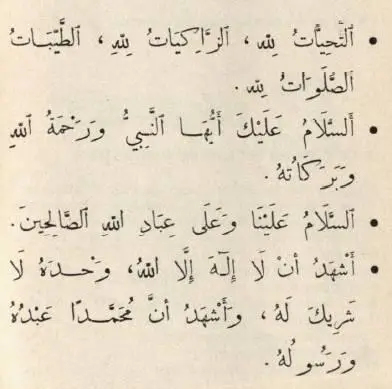 • ٱلتَّحِيَّاتُ لِلّٰهِ، ٱلزَّاكِيَاتُ لِلّٰهِ، ٱلطَّيِّبَاتُ
ٱلصَّلَوَاتُ لِلّٰهِ.
• أَلسَّلَامُ عَلَيْكَ أَيُّهَا ٱلنَّبِيُّ وَرَحْمَةُ ٱللّٰهِ
وَبَرَكَاتُهُ.
• أَلسَّلَامُ عَلَيْنَا وَعَلَى عِبَادِ ٱللّٰهِ ٱلصَّالِحِينَ.
• أَشْهَدُ أَنْ لَا إِلٰهَ إِلَّا ٱللّٰهُ، وَحْدَهُ لَا
شَرِيكَ لَهُ، وَأَشْهَدُ أَنَّ مُحَمَّدًا عَبْدُهُ
وَرَسُولُهُ.